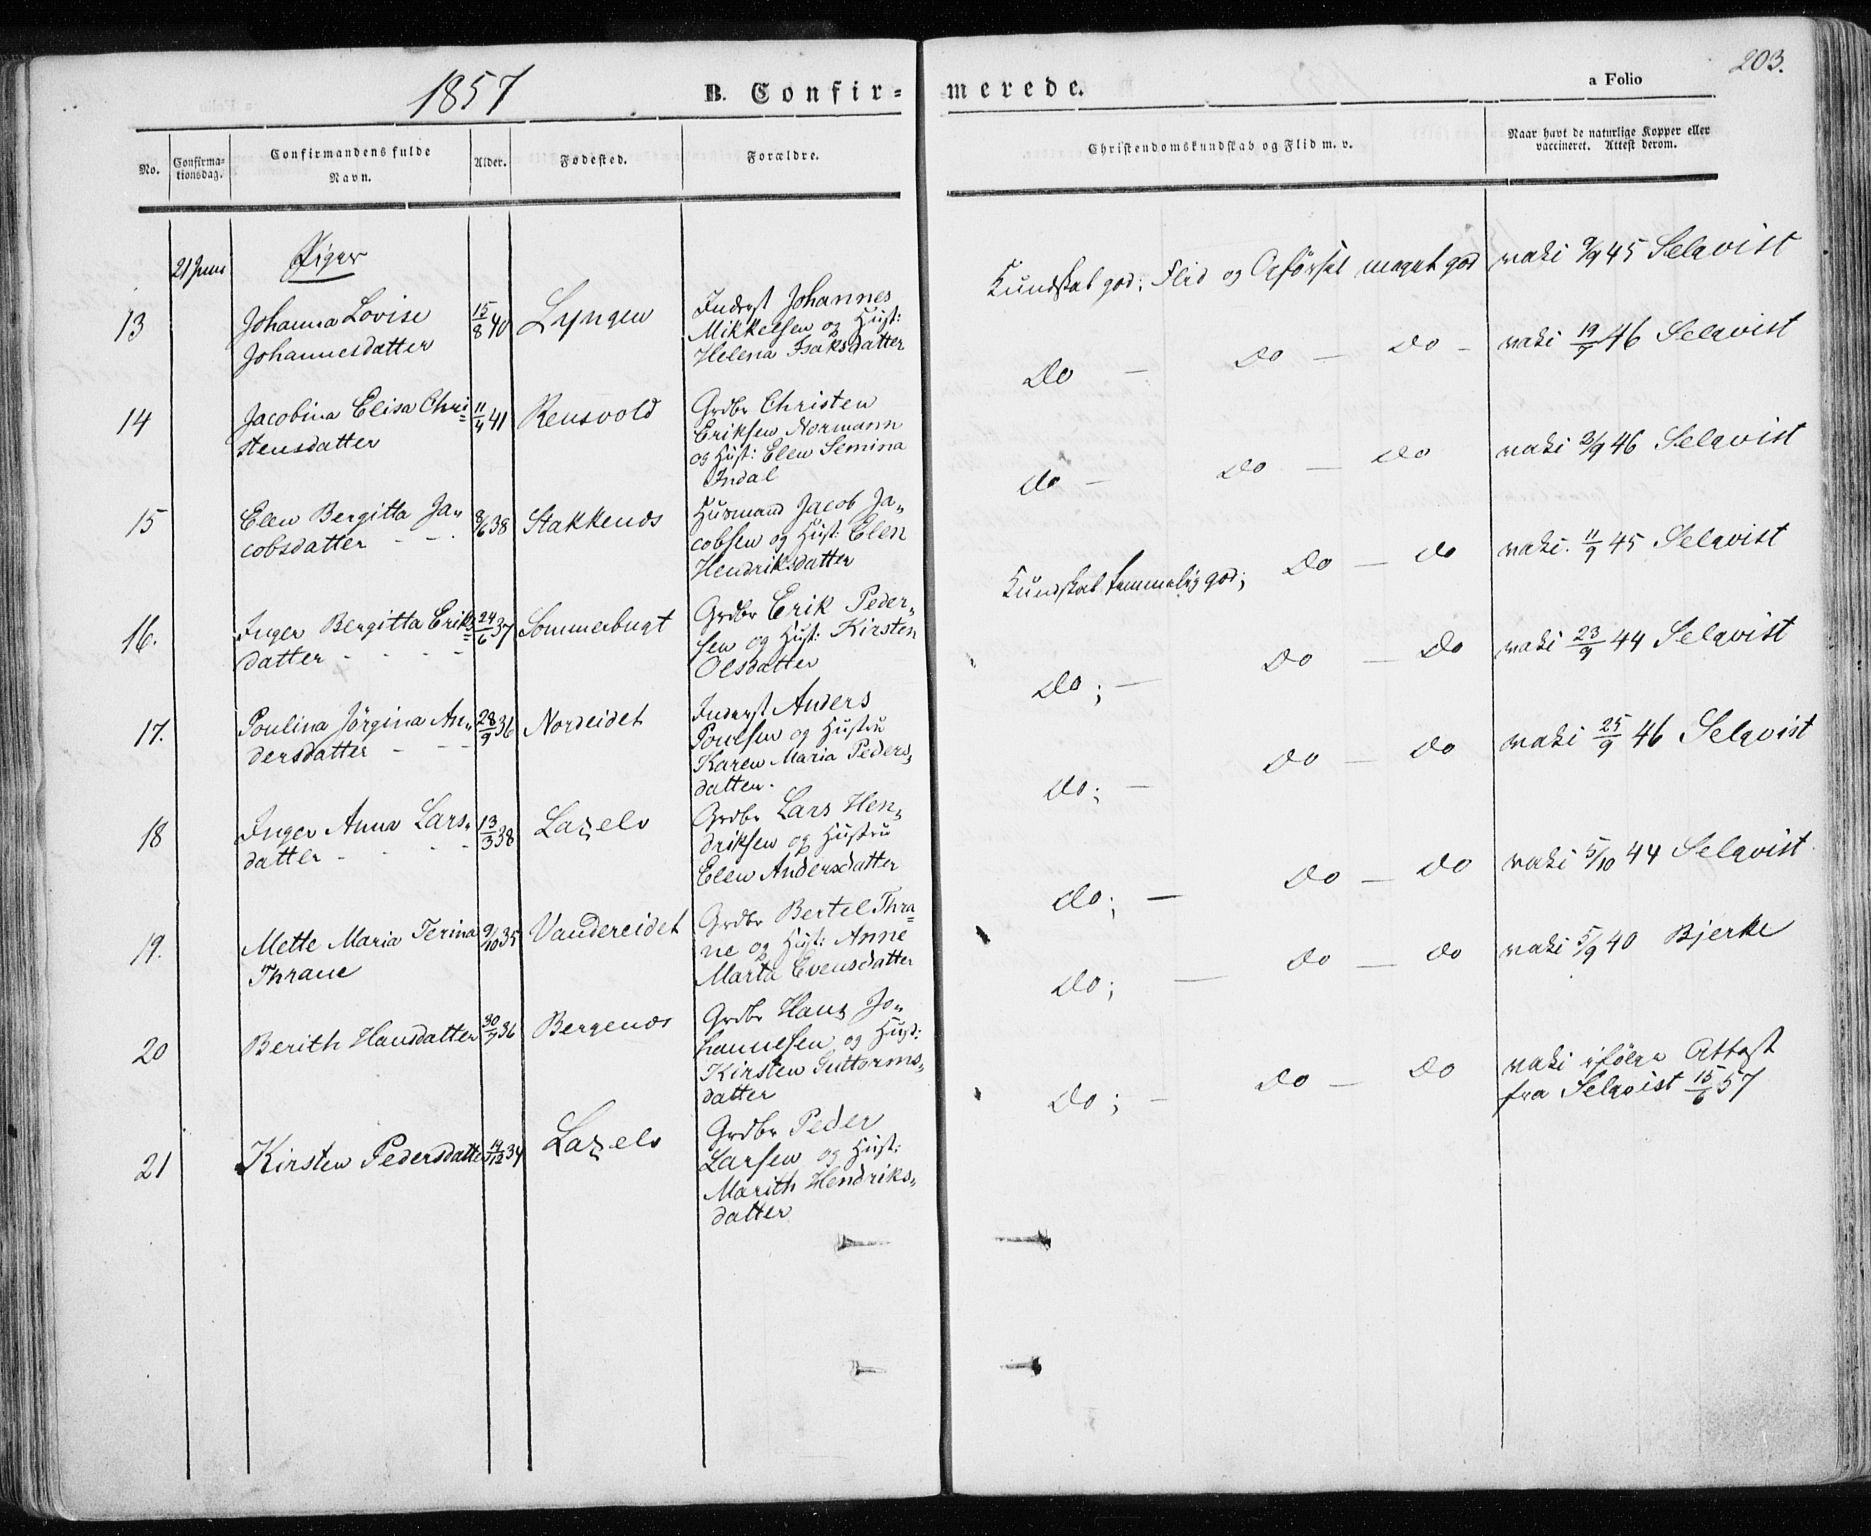 1857
B. Confir-
merede.
a Folio
203.
No.
Confirma-
tionsdag.
Confirmandens fulde
Navn.
Alder.
Fødested.
Forældre.
Christendomskundskab og Flid m. v.
Naar havt de naturlige Kopper eller
vaccineret. Attest derom.
21 Juni
Piger
13
Johanna Lovise
Johannesdatter
15/8 40
Lyngen
Inderst Johannes
Mikkelsen og Hust:
Helena Isaksdatter
Kundskab god; Flid og Opførsel meget god
vaki 9/9 45 Selqvist
14
Jacobina Elisa Chri=
stensdatter
11/4 41
Rensvold
Grdbr Christen
Eriksen Normann
og Hust: Elen Semina
Indal
Do - Do - Do -
vaki 19/9 46 Selqvist
15
Elen Bergitta Ja-
cobsdatter - - .
8/6 38
Stakkenæs
Husmand Jacob Ja-
cobsen og Hust: Elen
Hendriksdatter
do - Do - Do
vaki 2/9 46 Selqvist
16.
Inger Bergitta Eriks=
datter - - - -
24/6 37
Sommerbugt
Grdbr Erik Peder-
sen og Hust: Kirsten
Olsdatter
Kundskab temmelig god; Do - do
vaki. 11/9 45 Selqvist
17.
Poulina Jörgina An-
dersdatter - - -
28/9 36
Nordeidet
Inderst Anders
Poulsen og Hustru
Karen Maria Peders-
datter.
Do; - Do - Do
vaki 23/9 44 Selqvist
18
Inger Anna Lars-
datter - - - -
13/3 38
Laxelv
Grdbr Lars Hen-
driksen og Hustru
Elen Andersdatter
do; - Do - Do
vaki 25/9 46 Selqvist
19.
Mette Maria Terina
Thrane
9/10 35
Vandereidet
Grdbr Bertel Thra=
ne og Hust: Anne
Marta Evensdatter
do; - Do - Do
vaki 5/10 44 Selqvist
20
Berith Hansdatter
30/7 36
Bergenæs
Grdbr Hans Jo-
hannesen og Hust:
Kirsten Guttorms-
datter
Do; - Do - Do
vaki 5/9 40 Bjerke
21
Kirsten Pedersdatter
14/12 34
Laxelv
Grdbr Peder
Larsen og Hust:
Marith Hendriks-
datter
Do; - Do - Do
vaki ifölge Attest
fra Selqvist 15/6 57